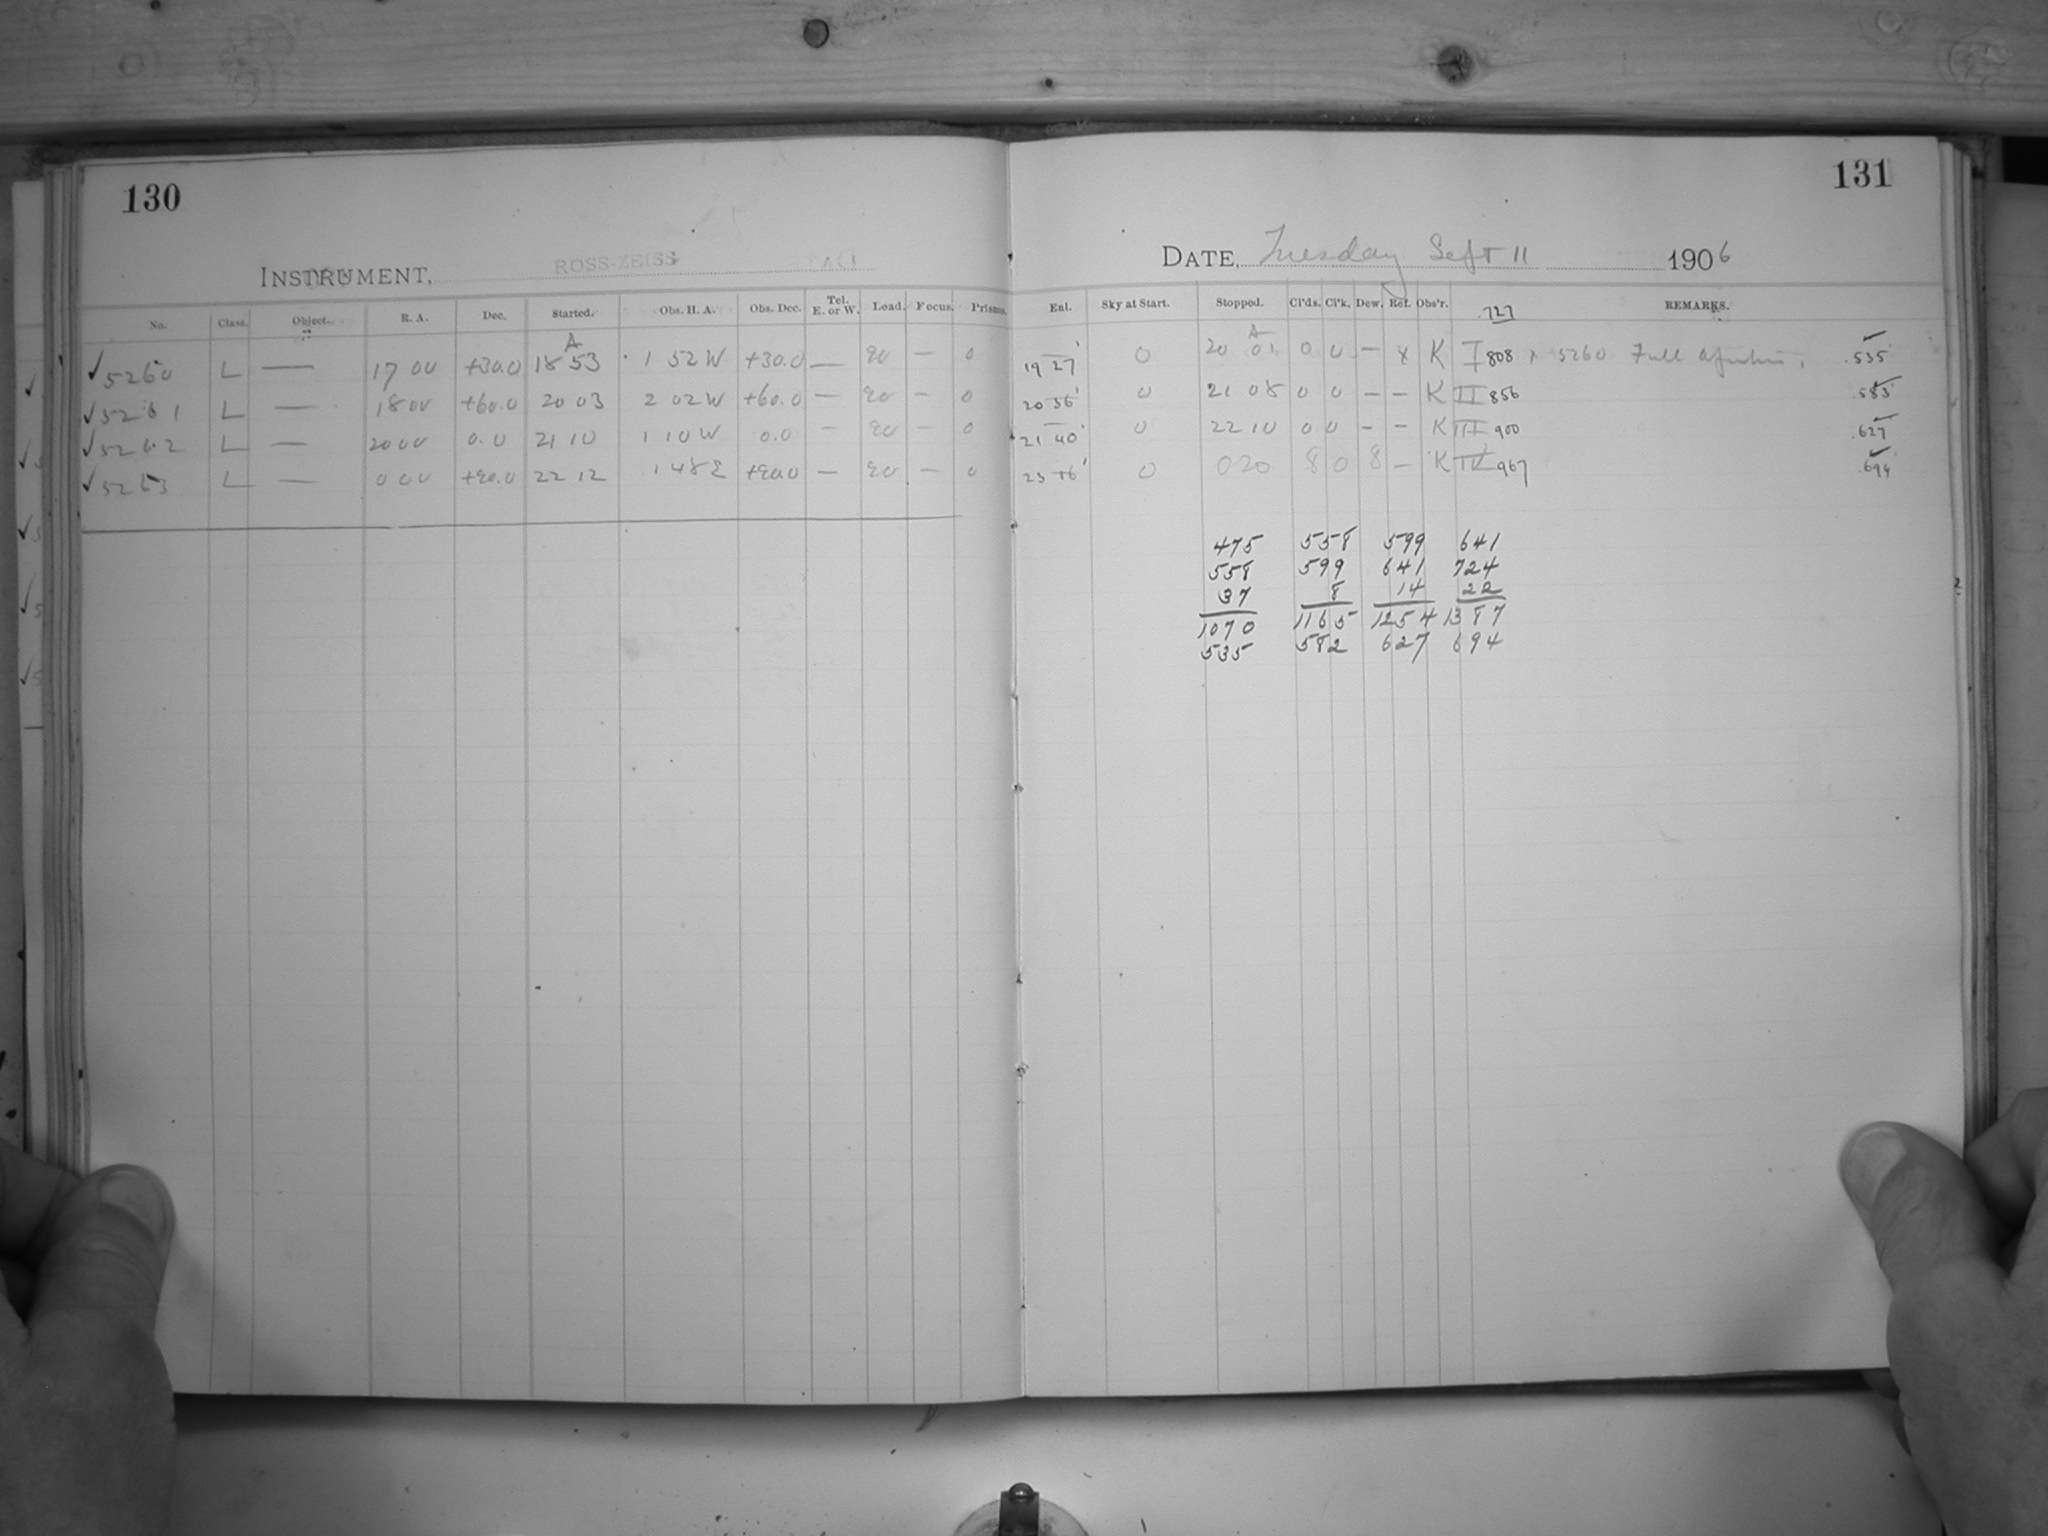 130
INSTRUMENT, ROSS-ZEISS
No. Class. Object. R. A. Dec. Started. Obs. H. A. Obs. Dec. Tel. E. or W. Load. Focus. Prisms.
A
✓5260 L — 17 00 +30.0 18 53 1 52 W +30.0 — 90 — 0
✓5261 L — 18 00 +60.0 20 03 2 02 W +60.0 — 90 — 0
✓5262 L — 20 00 0.0 21 10 1 10 W 0.0 — 90 — 0
✓5263 L — 0 00 +90.0 22 12 1 48 E +90.0 — 90 — 0
131
DATE, Tuesday Sept 11 1906
Exl. Sky at Start. Stopped. Cl'ds. Cl'k. Dew. Ref. Obs'r. REMARKS.
727
A
19 27 0 20 01 0 0 — x K I 808 x 5260 Full .535
20 36 0 21 08 0 0 — — K II 856 .583
21 40 0 22 10 0 0 — — K III 900 .627
23 16 0 0 20 8 0 8 — K IV 967 .694
475 558 599 641
558 599 641 724
37 8 14 22
1070 1165 1254 1387
535 582 627 694